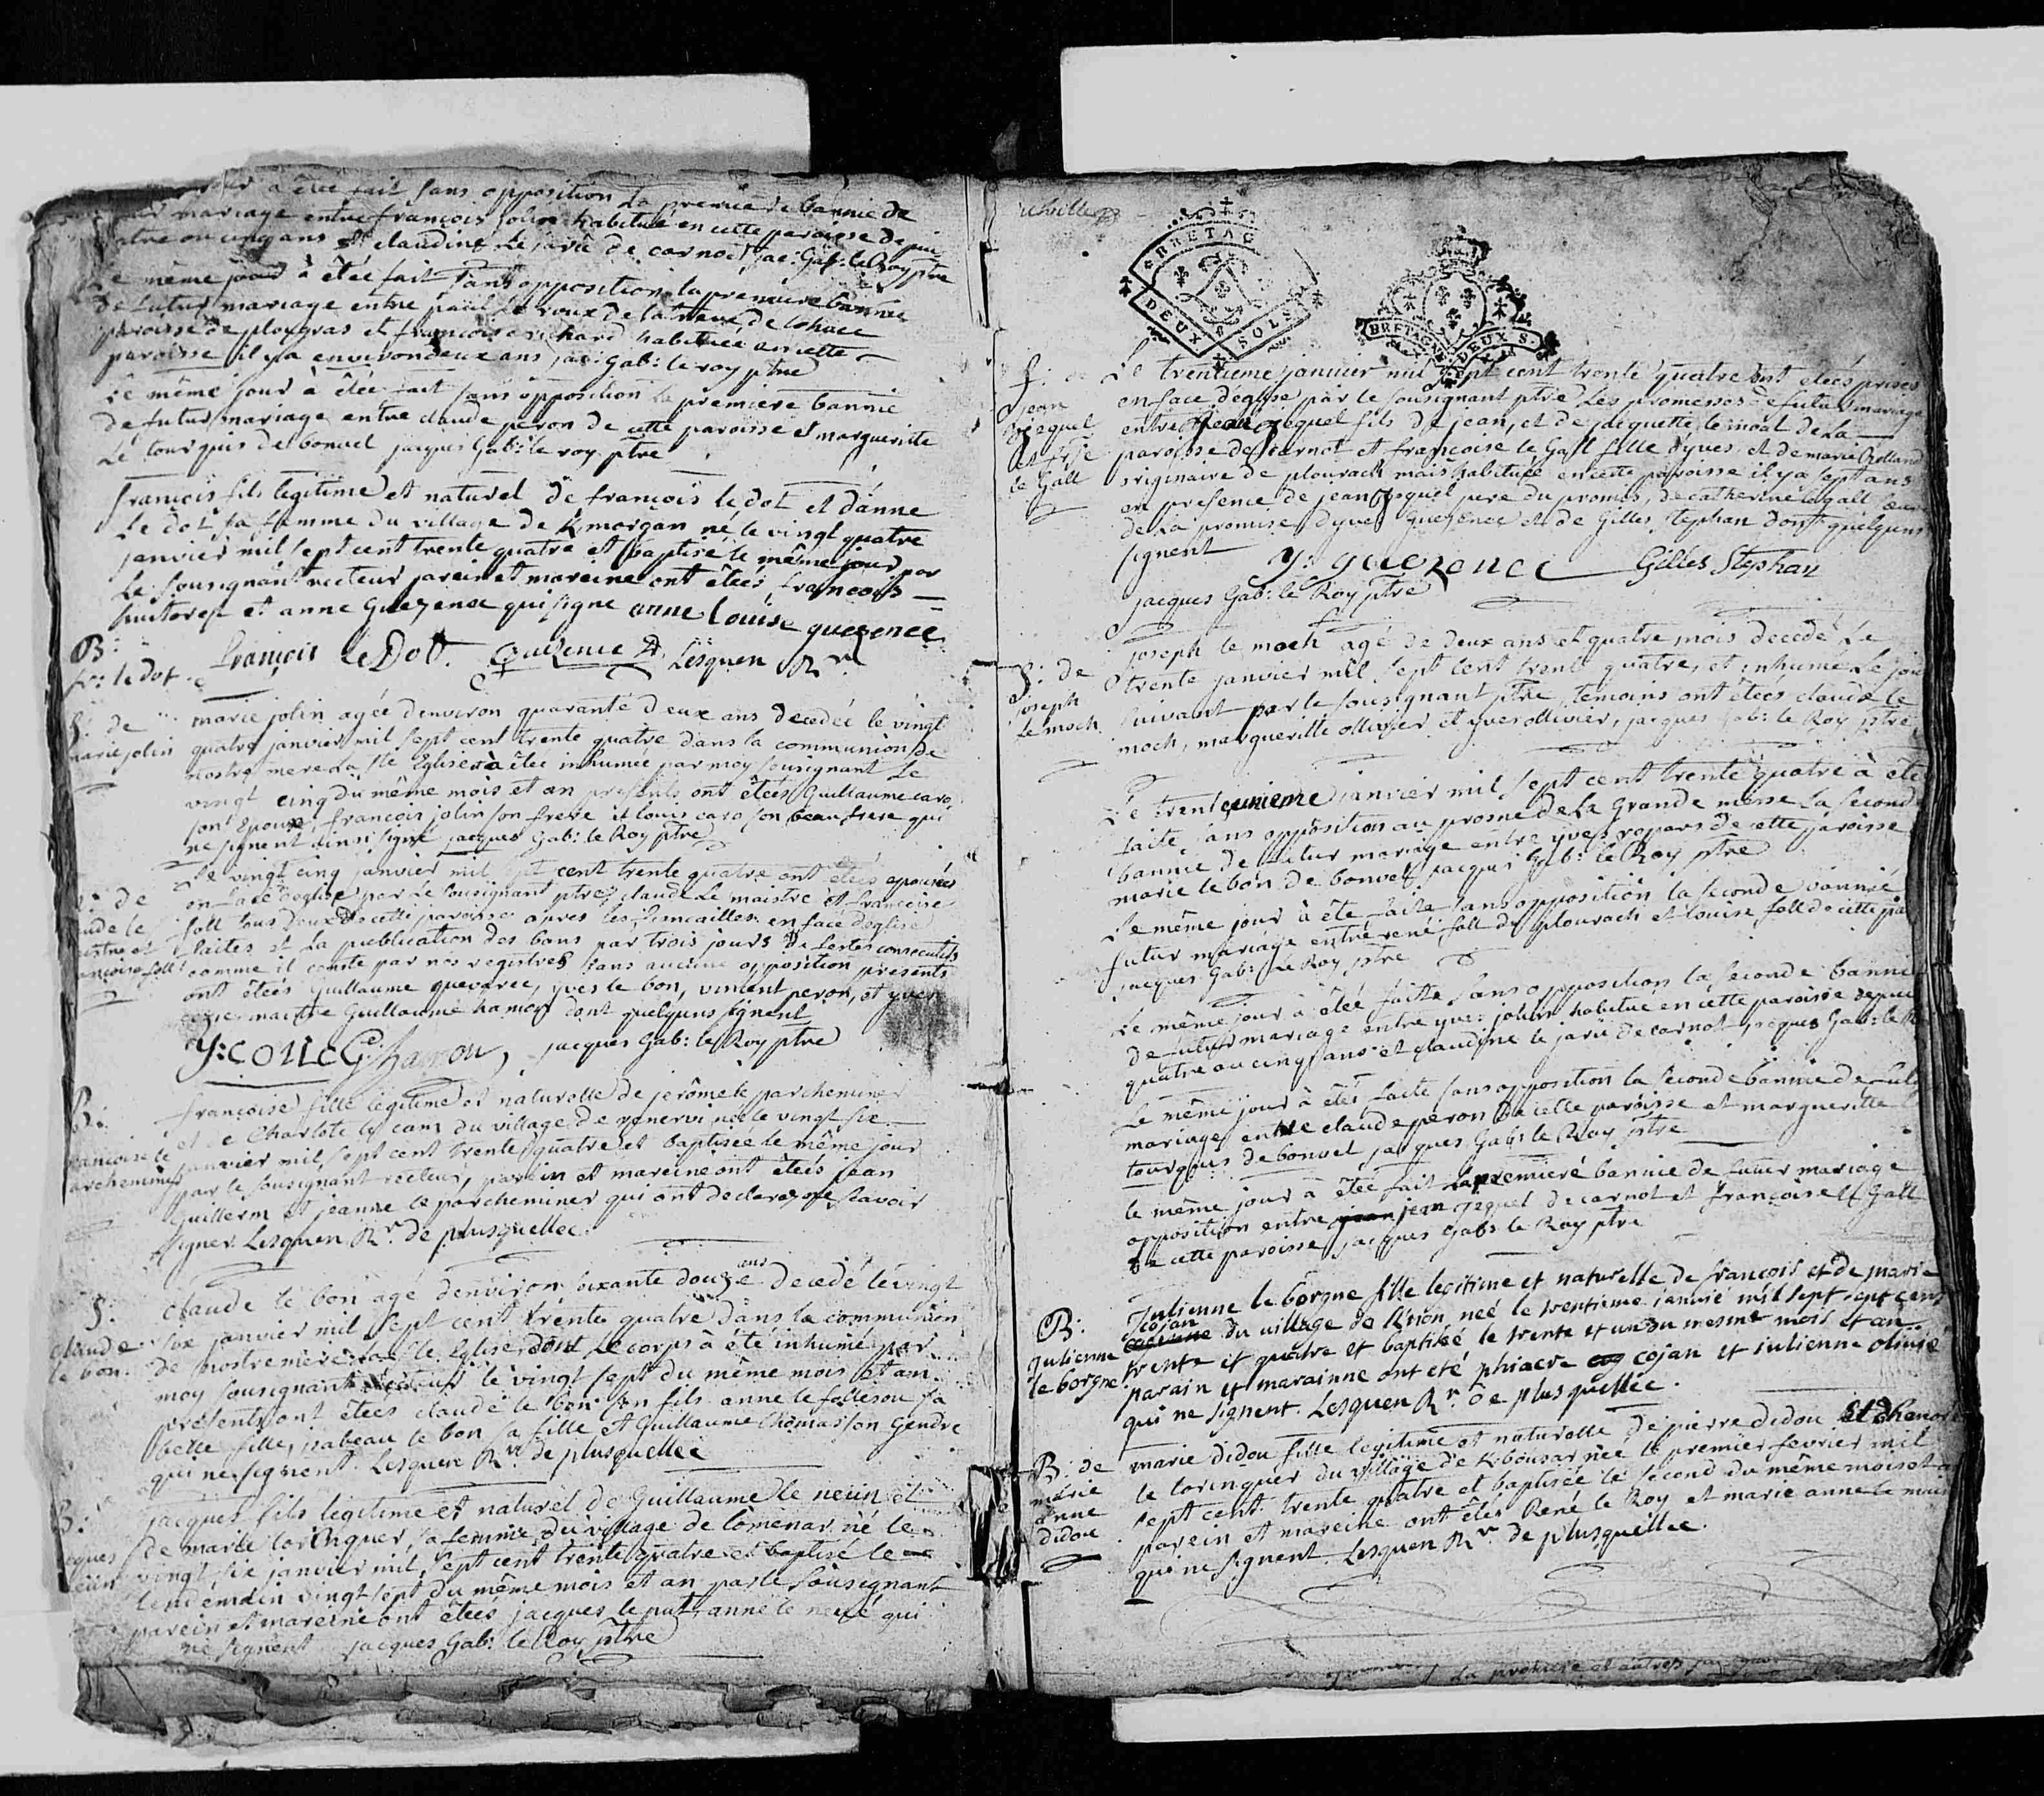 à êtée fait sans opposition La premiere bannie de
mariage entre françois jolin habitué en cette paroisse depuis
quatre ou cinq ans et claudine Le jaric de carnoet jac: Gab: le Roy ptre
Le même jour à êtée fait sans opposition la premiere bannie
de futur mariage entre paul Le roux de la treve de Lohuec
paroisse de plougras et françoise richard habituée en cette
paroisse il y a environ deux ans jac: Gab: le roy ptre
Le même jour à êtée fait sans opposition La premiere bannie
de futur mariage entre claude peron de cette paroisse et margueritte
Le tourquis de bonuel jacques Gab: le roy ptre
françois fils legitime et naturel de françois le dot et d'anne
Le dot sa femme du village de Kmorgan né le vingt quatre
janvier mil sept cent trente quatre et baptisé le même jour par
Le sousignant recteur parein et mareine ont êtées françois
et anne Guezenec qui signe anne Louise guezenec
B:
fr: le dot
françois le Dot. Guezenec Lesquen Rr
S: de
marie jolin
marie jolin agée denviron quarante deux ans decedée le vingt
quatre janvier mil sept cent trente quatre dans la communion de
nostre mere La ste Eglise à êtée inhumée par moy sousignant Le
vingt cinq du même mois et an presents ont êtées Guillaume caro
son Epoux, françois jolin son frere et louis caro son beau frere qui
ne signent ainsi signé jacques Gab: le Roy ptre
Le vingt cinq janvier mil sept cent trente quatre ont êtées epousées
en face d'eglise par Le sousignant ptre, claude Le maistre et francoise
foll tous deux de cette paroisse apres les fiancailles en face d'eglise
faites et La publication des bans par trois jours de festes consecutifs
comme il conste par nos registres sans aucune opposition presents
ont êtées Guillaume quevarec, yves le bon, vincent peron, et yves
maitre Guillaume hamon dont quelquns signent
Y: COTTIC G: hamon, jacques Gab: le Roy ptre
B:
francoise le
parcheminer
françoise fille légitime et naturelle de jerôme le parcheminer
et de Charlote le cam du village de née le vingt six
janvier mil sept cent trente quatre et baptisée le même jour
par le sousignant recteur, parein et mareine ont êtées jean
Guillerm et jeanne le parcheminer qui ont declaré ne scavoir
signer Lesquen Rr. de plusquellec
S:
claude
le bon.
claude le bon agé denviron soixante douze ans decedé le vingt
six janvier mil sept cent trente quatre dans la communion
de nostre mere la ste Eglise dont Le corps à été inhumé par
moy sousignant recteur le vingt sept du même mois et an
présents ont êtées claude le bon son fils anne le follesou sa
belle fille, isabeau le bon sa fille et Guillaume Thomas son Gendre
qui ne signent Lesquen Rr de plusquellec
jacques fils legitime et naturel de Guillaume le neun et
de marie torinquer, sa femme du village de lomenar né le
vingt six janvier mil sept cent trente quatre et baptisé le
lendemain vingt sept du même mois et an par le sousignant
parein et mareine ont êtées jacques le put, anne le qui
ne signent jacques Gab: le Roy ptre
BRETAG
DEUX SOLS
BRETAGNE DEUX S.
f:
jean
jezequel
et frse
le Gall
Le trentieme janvier mil sept cent trente quatre ont êtées prises
en face d'église par le sousignant ptre Les promesses de futur mariage
entre jean jezequel fils de jean, et de jacquette le moal de La
paroisse de carnot et françoise le Gall fille d'yves et de marie Rolland
originaire de plourach mais habituée en cette paroisse il y a sept ans
en presence de jean jezequel pere du promis, de catherine le gall soeur
de La promise d'yves Guezenec et de Gilles Stephan dont quelquns
signent Y: guezenec Gilles Stephan
jacques Gab: le Roy ptre
S: de
joseph
Le moch
joseph le moch agé de deux ans et quatre mois decedé Le
trente janvier mil sept cent trente quatre, et inhumé Le jour
suivant par le sousignant ptre, temoins ont êtées claude le
moch, margueritte ollivier et yves ollivier, jacques Gab: le Roy ptre
Le trenteunieme janvier mil sept cent trente quatre à êté
faite sans opposition au prosne de La Grande messe La seconde
bannie de futur mariage entre yves ropars de cette paroisse
marie le bon de bonvel jacques Gab: le Roy ptre
Le même jour à êté faite sans opposition la seconde bannie
futur mariage entre rené foll de plourach et louise foll de cette pa
jacques Gab: Le Roy ptre
Le même jour à êtée faitte sans opposition la seconde bannie
de futur mariage entre yves jolin habitué en cette paroisse depuis
quatre ou cinq ans et claudine le jaric de carnot jacques Gab: le
Le même jour à êtée faite sans opposition la seconde bannie de fut
mariage entre claude peron de cette paroisse et margueritte
tourquis de bonvel jacques Gab: le Roy ptre
le même jour à êtée fait la premiere bannie de futur mariage
opposition entre jean jezequel de carnot et françoise le Gall
de cette paroisse jacques Gab: le Roy ptre
B:
julienne
le borgne
Julienne le borgne fille legitime et naturelle de françois et de marie
cojan
du village de Krion, neé le trentieme janvié mil sept sept cent
trente et quatre et baptiseé le trente et un du mesme mois et an
parain et marainne ont eté phiacre cojan et julienne olivié
qui ne signent. Lesquen Rr. de plusquellec.
B: de
marie
anne
didou
marie didou fille legitime et naturelle de pierre didou et d'henor
le torinquer du village de Kbousar née le premier fevrier mil
sept cent trente quatre et baptisée le second du même mois et
parein et mareine ont êtés René le Roy et marie anne le
qui ne signent Lesquen Rr de plusquellec.
La promise et autres